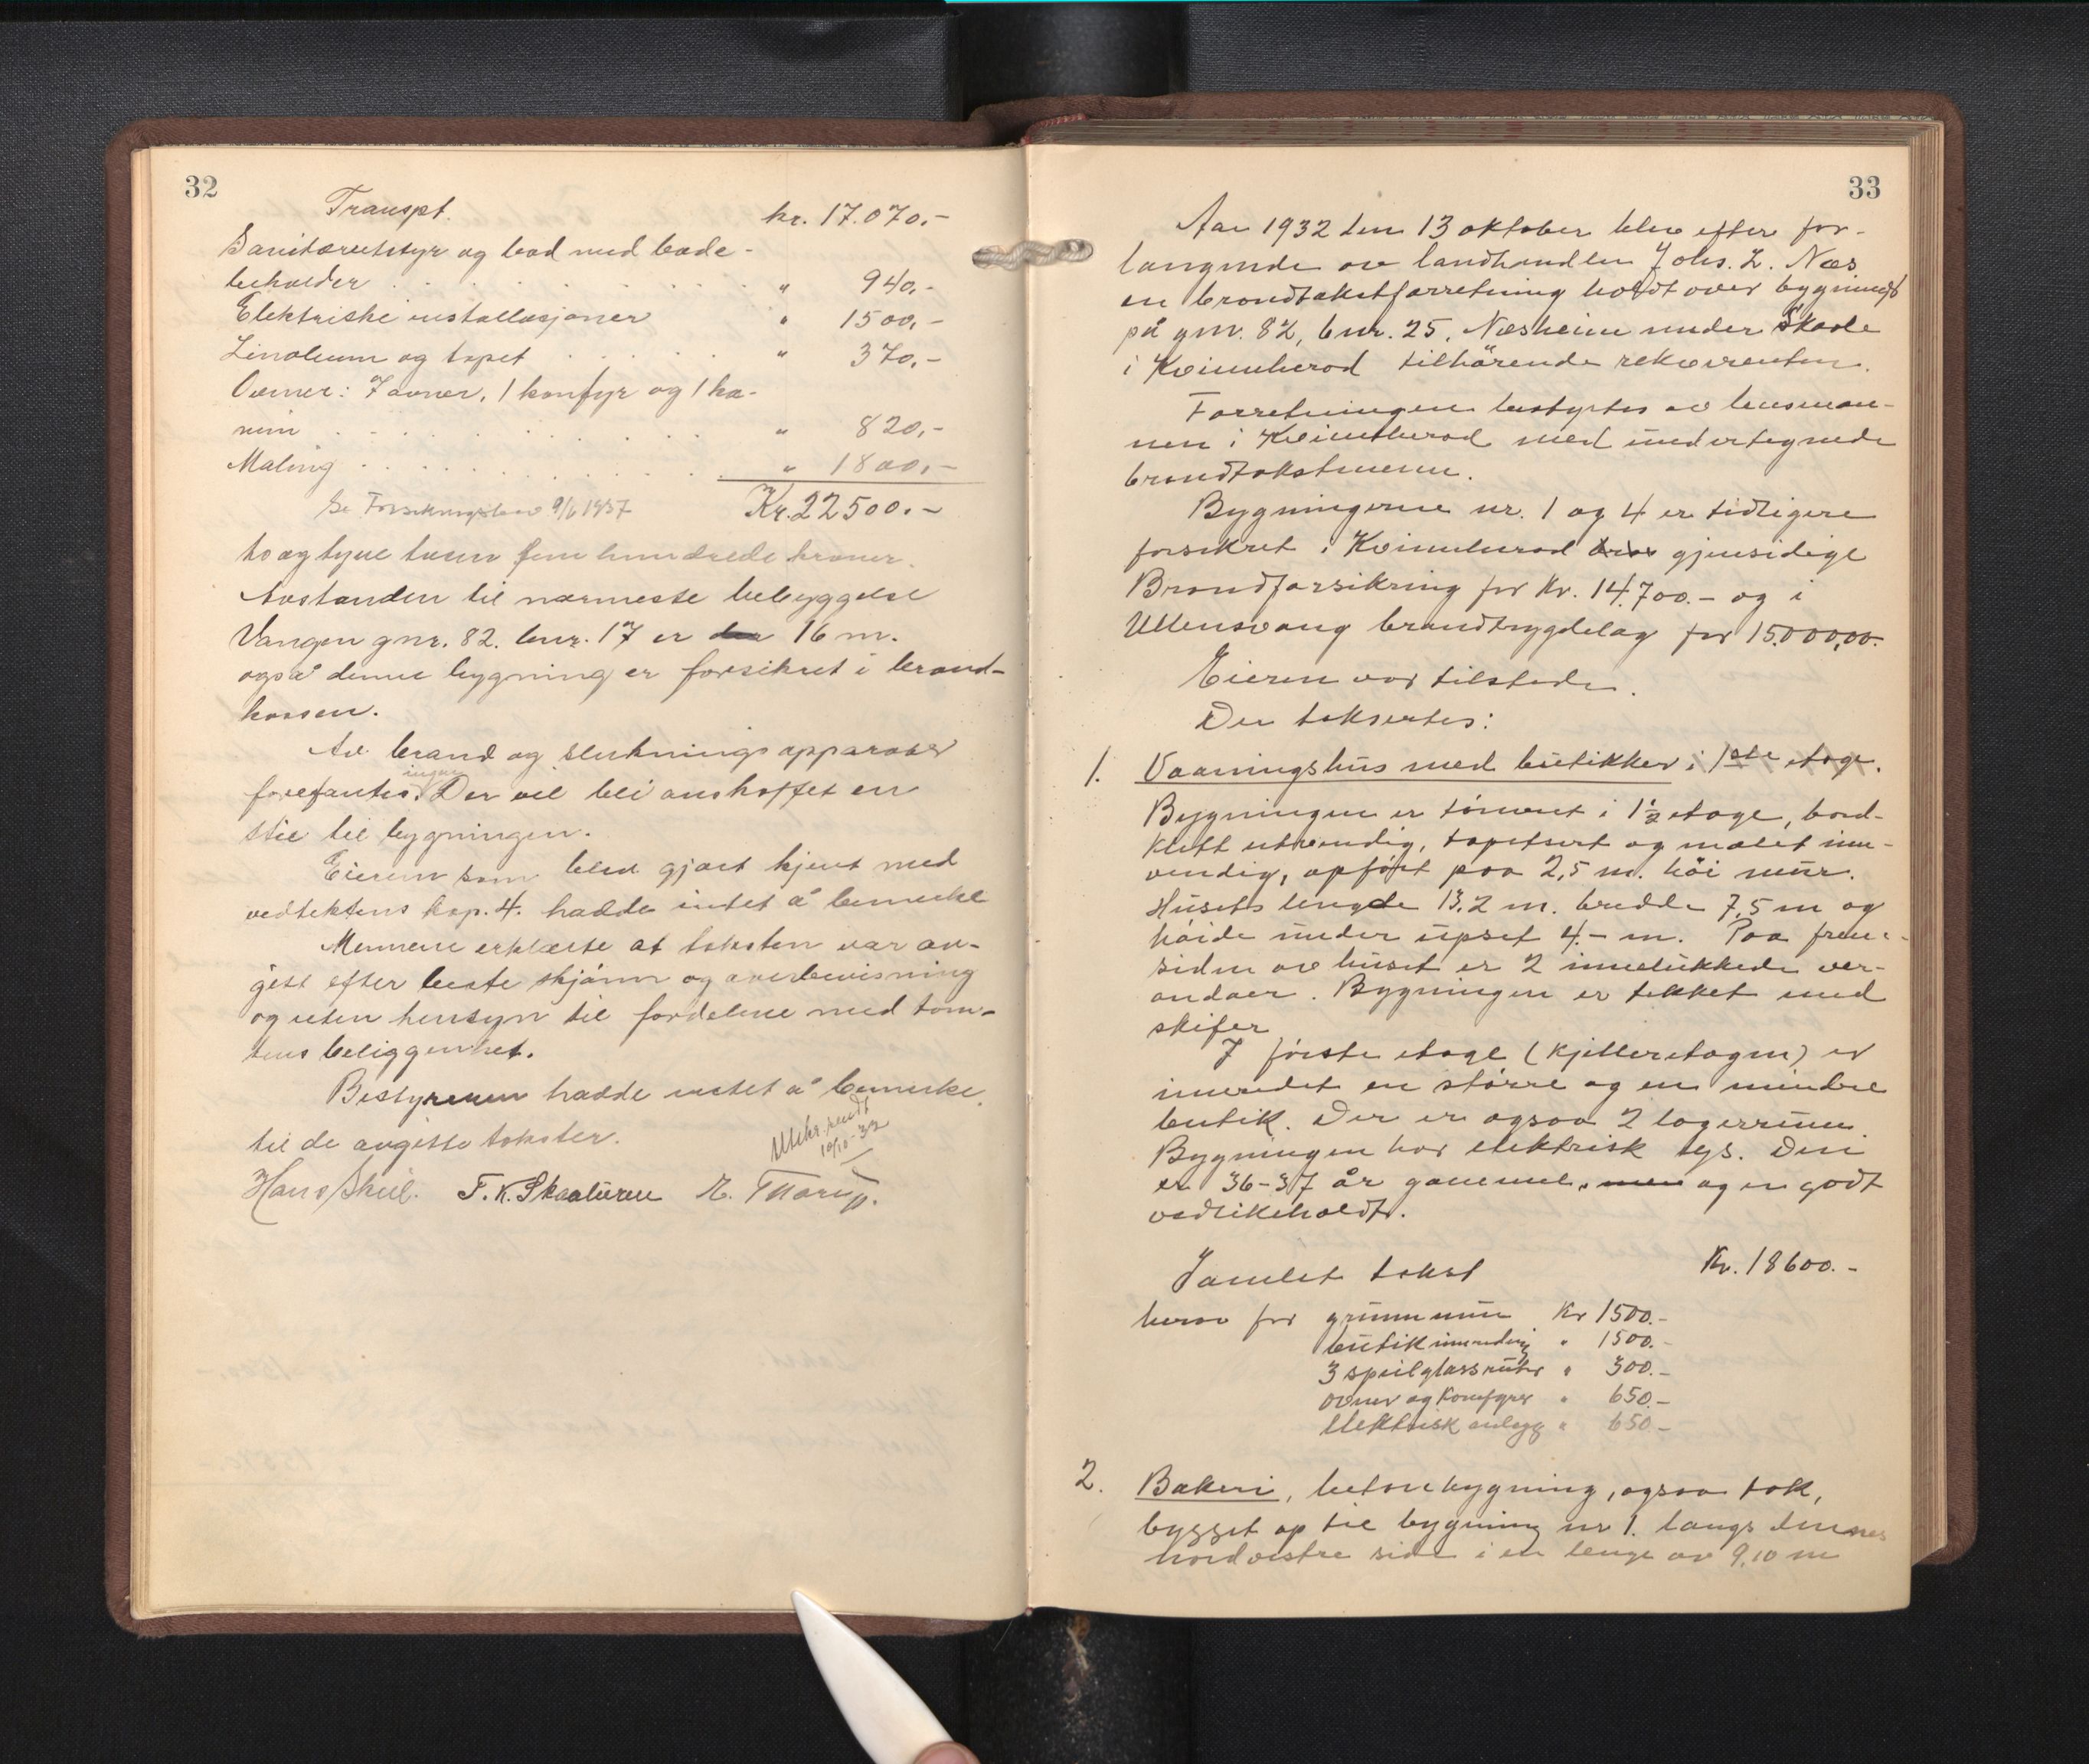 32
Transpt. kr. 17.070.-
Sanitærutstyr og bad med bade-
beholder . . . . . " 940,-
Elektriske installasjoner " 1500,-
Linoleum og tapet . . . . " 370,-
Ovner: 7 ovner, 1 komfyr og 1 ka-
min . . . . . " 820,-
Maling . . . . . " 1800,-
Se Forsikringslov 9/6 1937 Kr. 22500.-
to og tyve tusen fem hundrede kroner.
Avstanden til nærmeste bebyggelse
Vangen gnr. 82. bnr. 17 er 16 m.
også denne bygning er forsikret i brand-
kassen.
Av brand og slukningsapparater
forefantes ingen. Der vil bli anskaffet en
stie til bygningen.
Eieren som blev gjort kjent med
vedtektens kap. 4. hadde intet å bemerke
Mennene erklærte at taksten var av-
gitt efter beste skjønn og overbevisning
og uten hensyn til fordelene med tom-
tens beliggenhet.
Bestyreren hadde intet å bemerke
til de avgitte takster.
Utskr. sendt
10/10-32
Hans Skeil. T. K. Skaaluren E. Thorup.
33
Aar 1932 den 13 oktober blev efter for-
langende av landhandler Johs. L. Næs
en brandtakstforretning holdt over bygninger
på gnr. 82, bnr. 25, Næsheim under Skåle
i Kvinnherad tilhörende rekvirenten.
Forretningen bestyrtes av lensman-
nen i Kvinnherad med undertegnede
brandtakstmenn.
Bygningerne nr. 1 og 4 er tidligere
forsikret i Kvinnherad gjensidige
Brandforsikring for Kr. 14.700.- og i
Ullensvang brandtrygdelag for 15.000,00.
Eieren var tilstede.
Der takseertes:
1. Vaaningshus med butikker i 1ste etage.
Bygningen er tömret i 1½ etage, bord-
klett utvendig, tapetsert og malet inn-
vendig, opfört paa 2,5 m. höi mur.
Husets lengde 13,2 m. bredde 7,5 m og
höide under upset 4.- m. Paa frem-
siden av huset er 2 innelukkede ver-
andaer. Bygningen er tekket med
skifer
I förste etage (kjelleretagen) er
innredet en större og en mindre
butik. Der er ogsaa 2 lagerrum
Bygningen har elektrisk lys. Den
er 36-37 år gammel, men og er godt
vedlikeholdt.
Samlet takst Kr. 18600.-
herav for grunnmur Kr 1500.-
butikinnredning " 1500.-
3 speilglassruter " 300.-
ovner og komfyrer " 650.-
Elektrisk anlegg " 650.-
2. Bakeri, betonbygning, ogsaa tak,
bygget op til bygning nr 1. langs dennes
nordvestre side i en lengde av 9,10 m